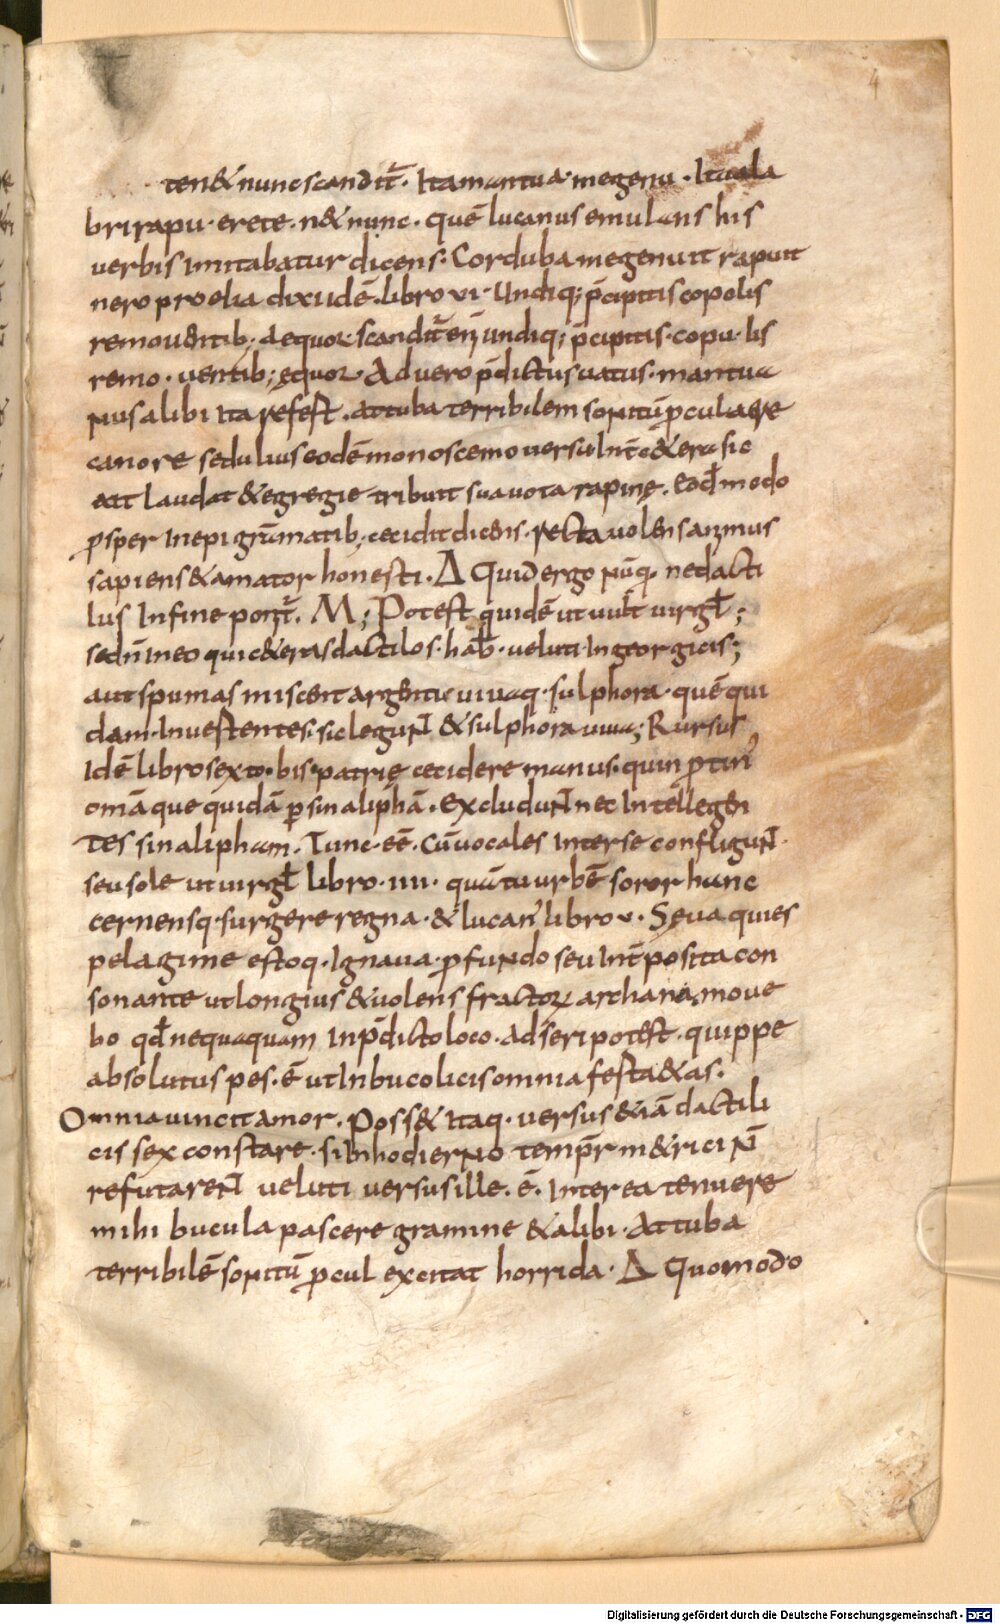 4
ten& nunc scandit̄. Ita mantua · me genu · It cala
bri rapu · ere te · n& nunc · quē lucanus emulans his
verbis imitabatur dicens · Corduba me genuit rapuit
nero proelia dixi idē · libro vi · Undiq; p̄cipitis copolis
remouentib; aequor scandit̄ eni undiq; p̄cipitis · copu · lis
remo · uentib; equor · Ad uero p̄dictus uatus · mantua
nus alibi ita refest . at tuba terribilem sonitū ꝓcul aere
canore sedulius eodē monoscemo uersu Int̄ c&era sic
ait laudat & egregie tribuit sua uota rapinę . eod̄ modo
ꝓsper In epigrāmatib; cecidit dicens · recta uolens animus
sapiens & amator honesti . Δ Quid ergo nūq · ne dacti
lus In fine ponit̄ . M ; Potest quidē ut uult uirgl̄ ;
sed n̄ in eo qui c&eras dactilos · hab̄ · veluti · In georgicis ;
aut spumas miscent argenti uiuaq · sulphora · quē qui
dam · Inuestentes · sic legunt & sulphora uiua ; Rursus
Idē libro sexto · bis patrię cecidere manus · quin ꝓtin'
omā que quidā ꝑ sinaliphā . excludunt nec Intellegen
tes sinalipham . Tunc · eē . cū uocales inter se confligunt ·
seu sole ut uirgl̄ libro · iiii · quā tu urbē soror hanc
cernens q · surgere regna · & lucan' libro v · Seua quies
pelagi me estoq · Ignaua · ꝓfundo seu Int̄ posita con
sonante ut longius & uolens fractor archana moue
bo qd̄ nequaquam In p̄dicto loco · adseri potest · quippe
absolutus pes · ē ut In bucolicis omnia festa & as .
Omnia uincit amor . Poss& itaq · versus &iā dactili
cis sex constare · si In hodierno tempr̄ m&rici n̄
refutarent veluti versus ille . ē . Interea tenuere
mihi bucula pascere gramine & alibi · At tuba
terribilē sonitū ꝓcul excitat horrida · Δ Quomodo
Digitalisierung gefördert durch die Deutsche Forschungsgemeinschaft - DFG